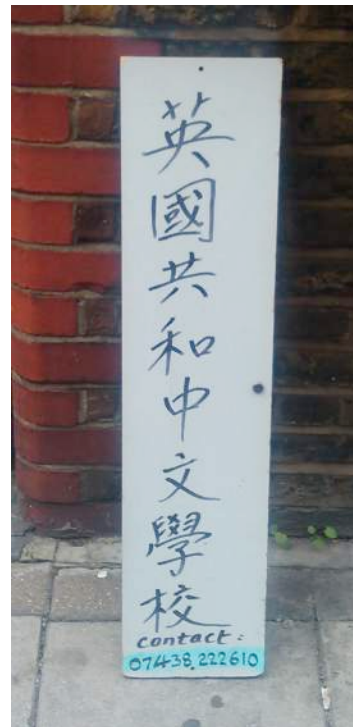 英國共和中文學校
contact:
07438.222610